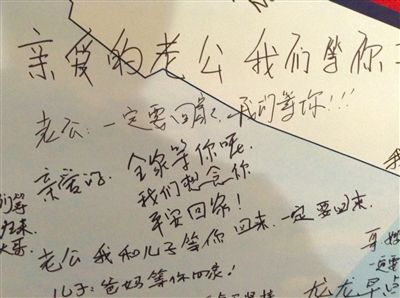 亲爱的老公 我们等你
老公:一定要回家,我们等你!!!
亲爱的:全家等你呢
我们想念你
平安回家!
老公 我和儿子等你回来,一定要回来
儿子:爸妈等你回家!
们等
归来
大哥
一定要
龙龙早点